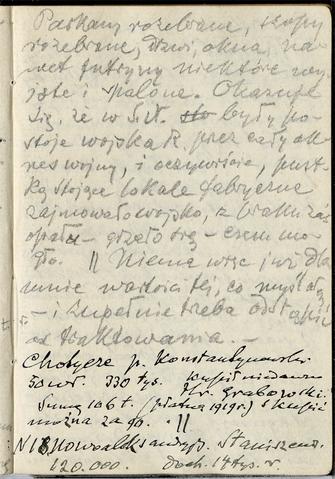 Parkany rozebrane, szopy
rozebrane, drzwi, okna, na-
wet futryny niektóre wy-
jęte i spalone. Okazuje
się, że w St. były po-
stoje wojska R. przez cały ok-
res wojny, i oczywiście, pust-
ką stojące lokale fabryczne
zajmowało wojsko, z braku zaś
opału – grzało się – czem mo-
gło. || Niema więc już dla
mnie wartości tej, co myślałem
– i zupełnie trzeba odstąpić
od traktowania. –
Chotycze p. Konstantynowski
50 wł. 330 tys. kupił niedawno
Hr. Grabowski
Suma 106 t. (płatna 1919 r.) skupić
można za 90. ||
Nowoaleksandryjs. Staniszew.
120.000. Doch. 14 tys. r.